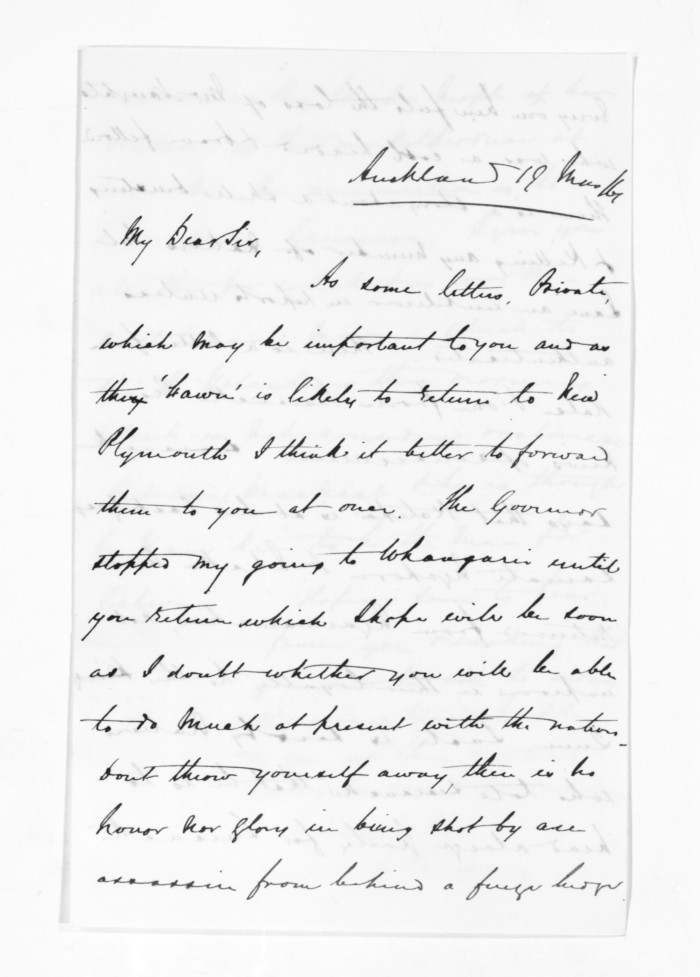 Auckland 19 Mar/61
My Dear Sir,
As some letters, Private,
which may be important to you and as
the 'Fawn' is likely to return to New
Plymouth I think it better to forward
them to you at once. The Governor
stopped my going to Whangarei until
you return which I hope will be soon
as I doubt whether you will be able
to do much at present with the natives -
Dont throw yourself away, there is no
honor nor glory in being shot by an
assassin from behind a furze hedge